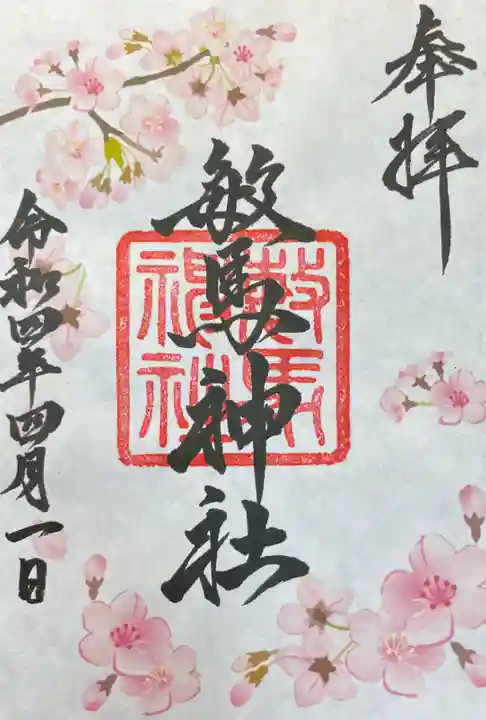 奉拝
敏馬神社
敏馬神社
令和四年四月一日